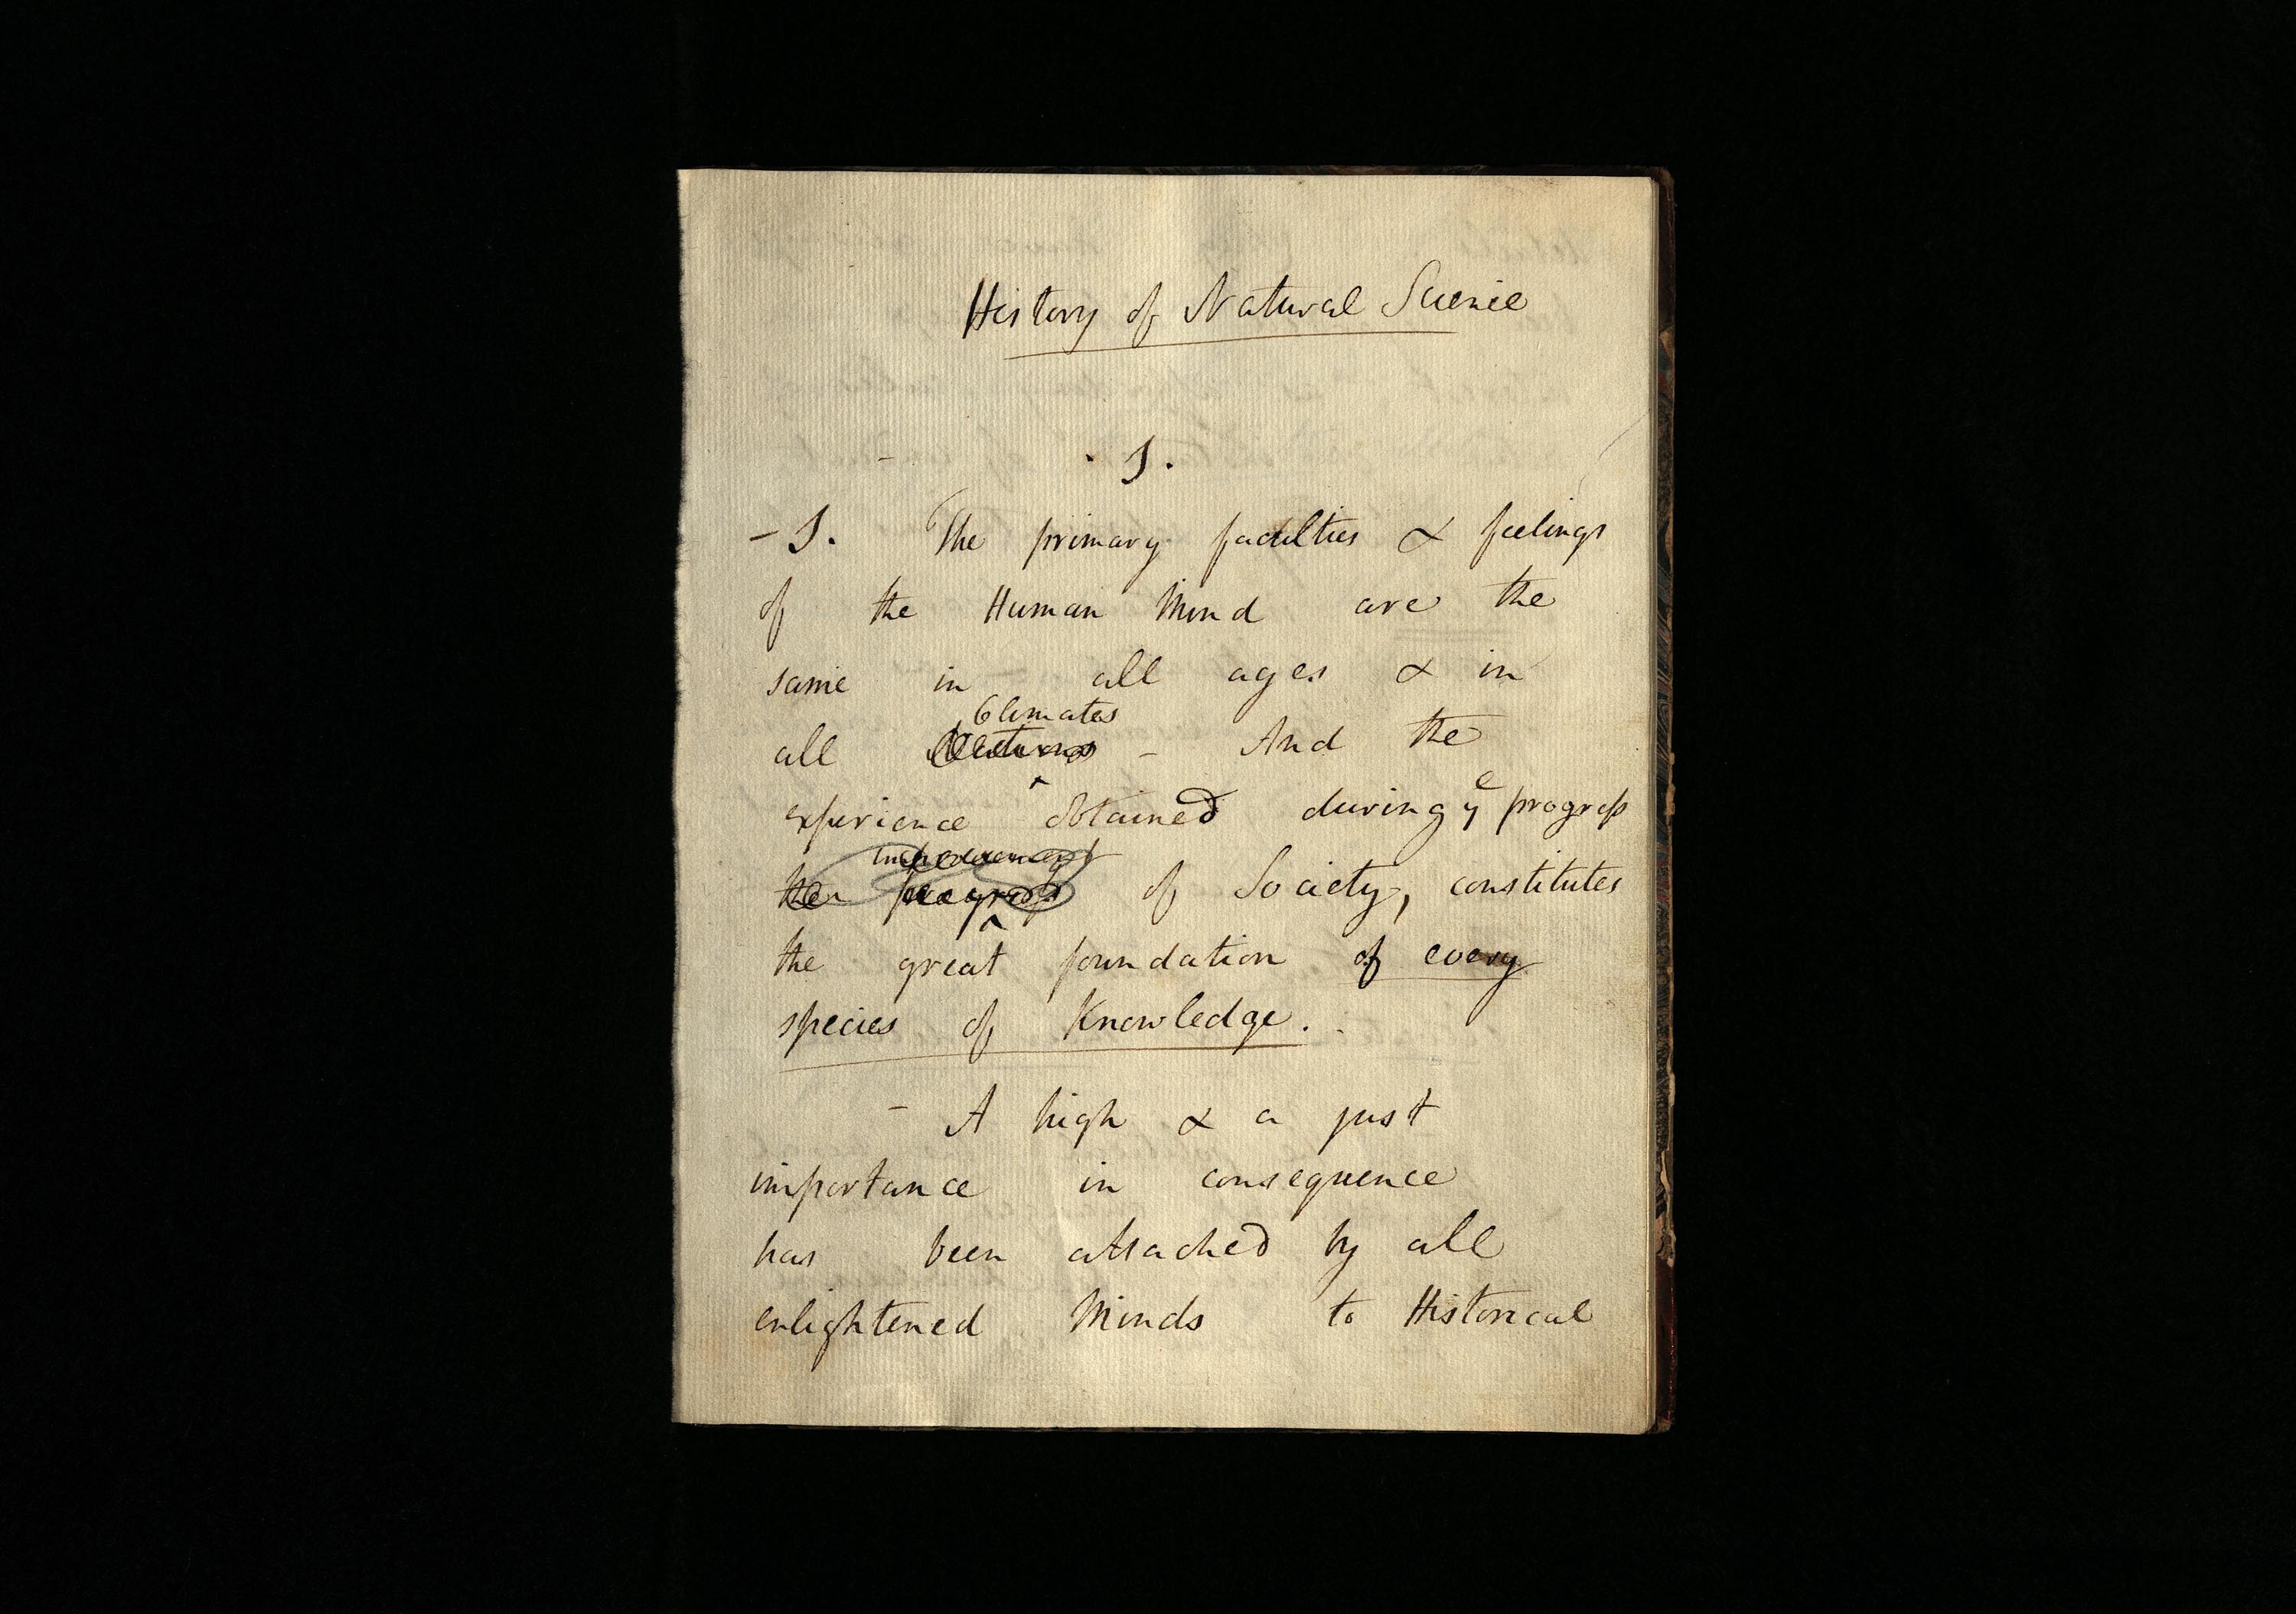 History of Natural Science
. 1 .
- 1. The primary faculties & feelings
of the Human Mind are the
same in all ages & in
Climates
all - And the
experience obtained during ye progress
improvement
the progress of Society, constitutes
the great foundation of every
species of Knowledge.
- A high & a just
importance in consequence
has been attached by all
enlightened Minds to Historical